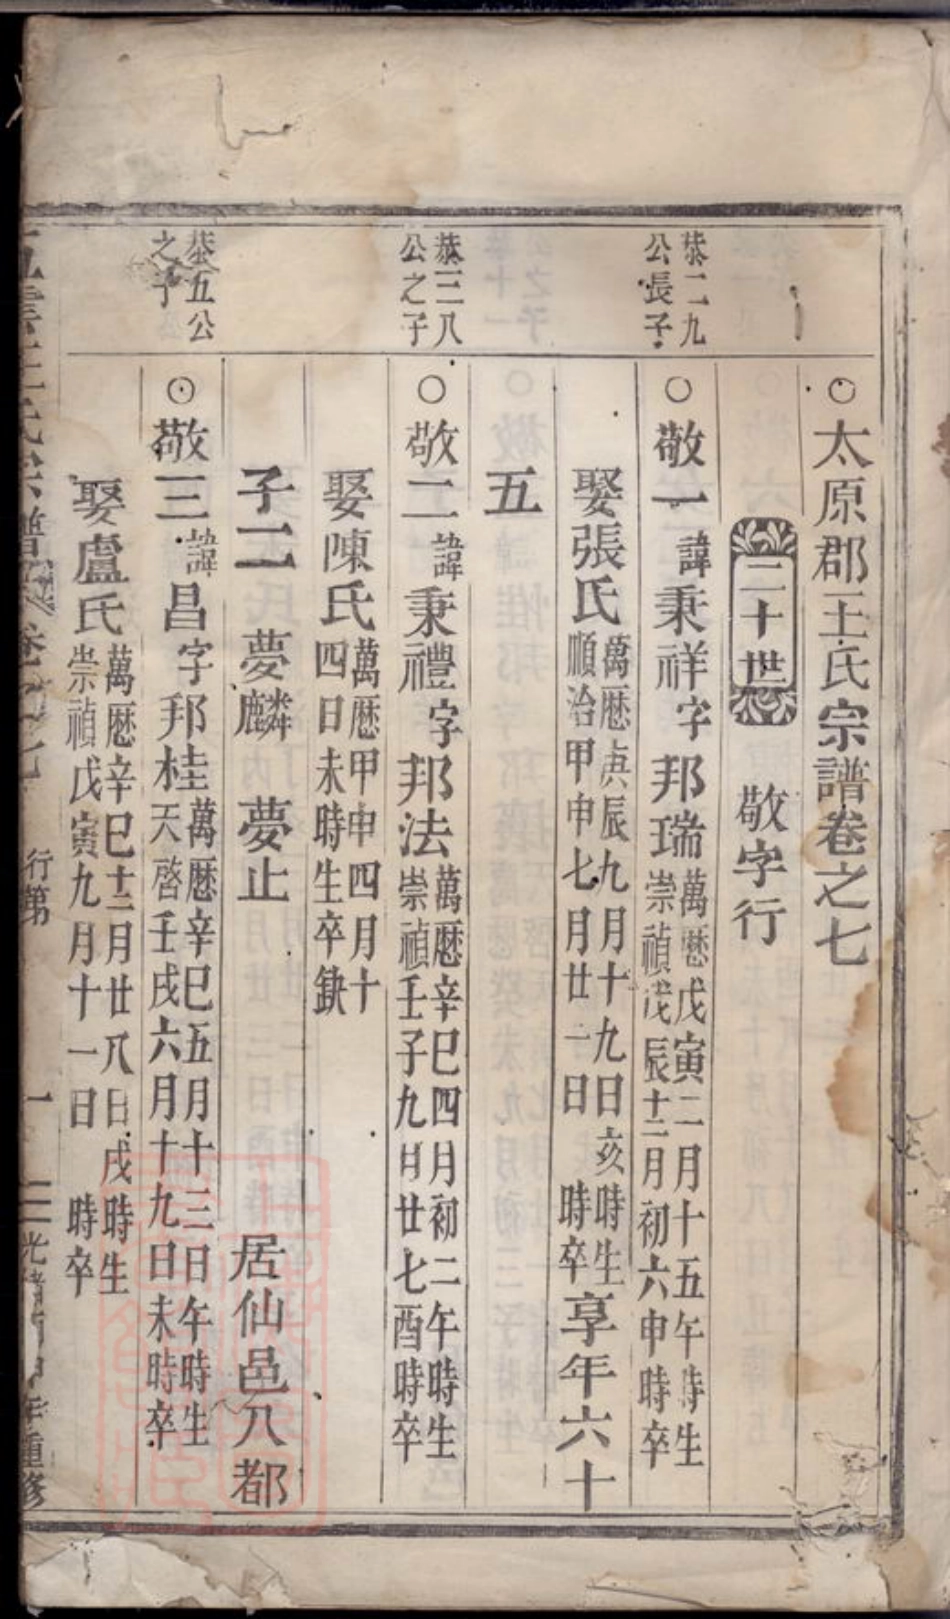 ○太原郡王氏宗譜卷之七
二十世 敬字行
恭二九公長子
○敬一諱秉祥字邦瑞萬曆戊寅二月十五午時生崇禎戊辰十二月初六申時卒
娶張氏萬曆庚辰九月十九日亥時生順治甲申七月廿一日 時卒享年六十
五
恭三八公之子
○敬二諱秉禮字邦法萬曆辛巳四月初二午時生崇禎壬子九月廿七酉時卒
娶陳氏萬曆甲申四月十四日未時生卒鈌
子二 夢麟 夢止 居仙邑八都
恭五公之子
○敬三諱昌字邦桂萬曆辛巳五月十三日午時生天啓壬戌六月十九日未時卒
娶盧氏萬曆辛巳十二月廿八日戌時生崇禎戊寅九月十一日 時卒
王氏宗譜 卷之七 行第 一 光緒 年重修